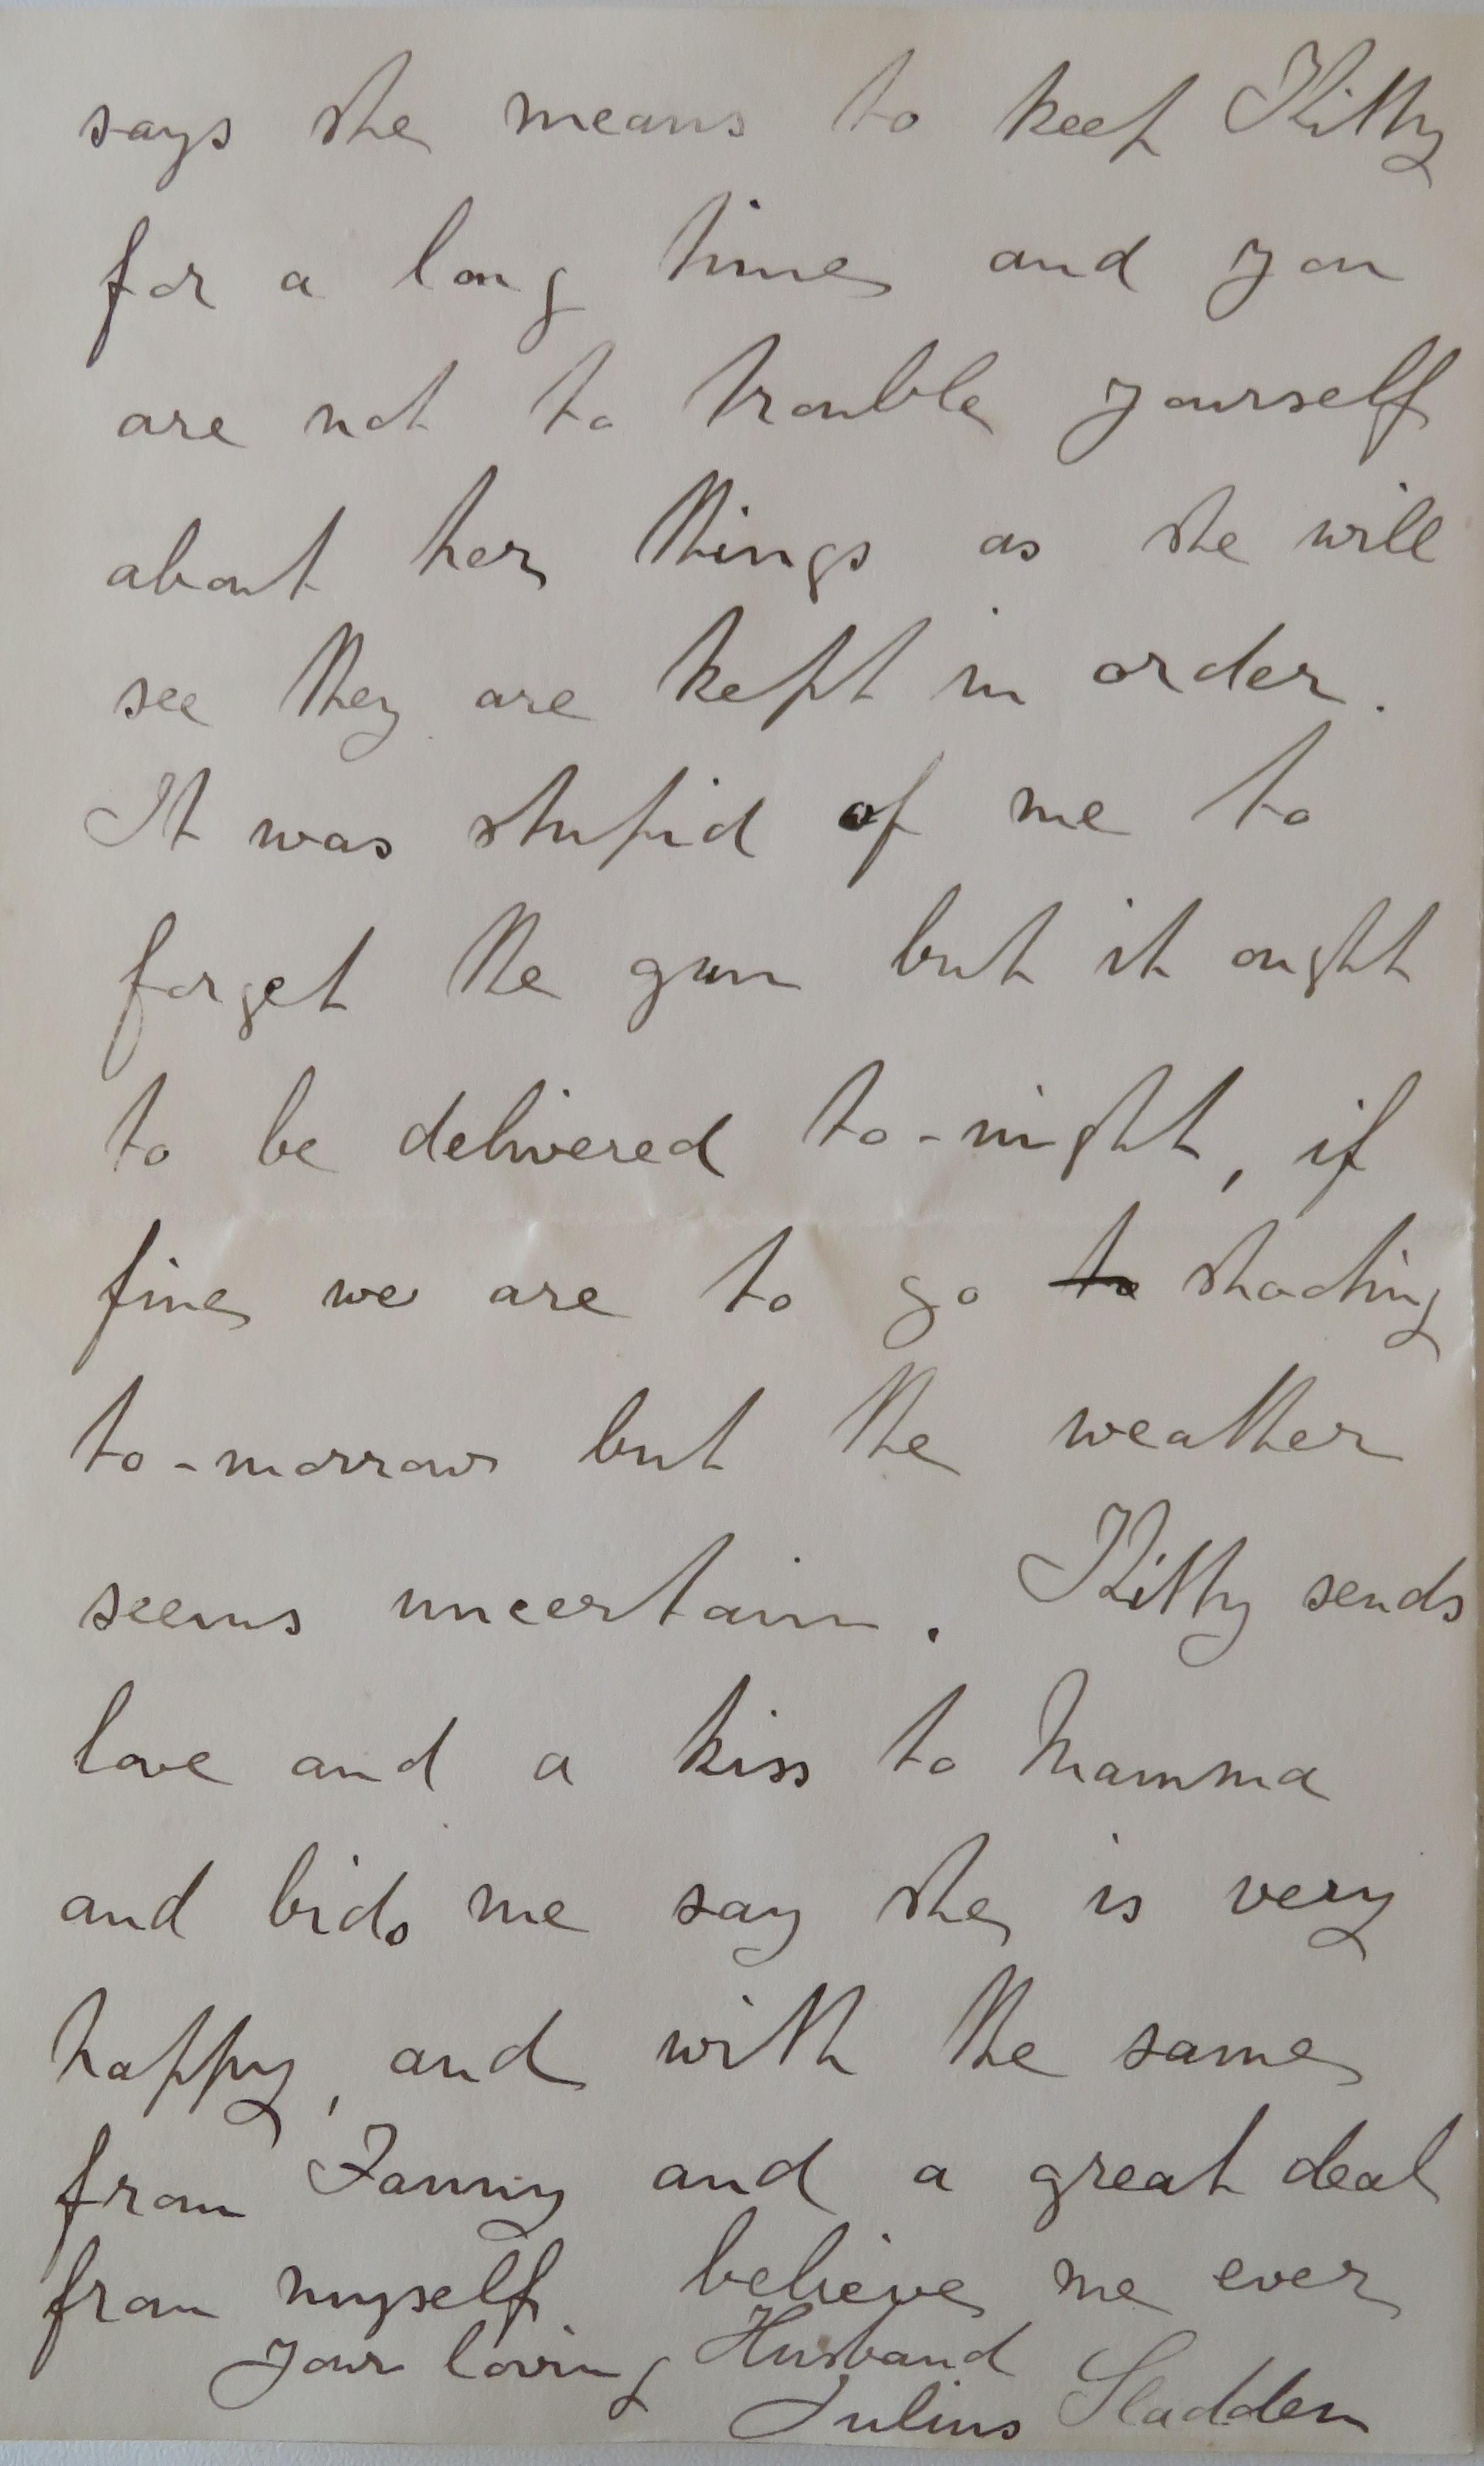 says she means to keep Kitty
for a long time and you
are not to trouble yourself
about her things as she will
see they are kept in order.
It was stupid of me to
forget the gun but it ought
to be delivered to-night, if
fine we are to go to shooting
to-morrow but the weather
seems uncertain. Kitty sends
love and a kiss to Mamma
and bids me say she is very
happy, and with the same
from Fanny and a great deal
from myself believe me ever
your loving Husband
Julius Sladden